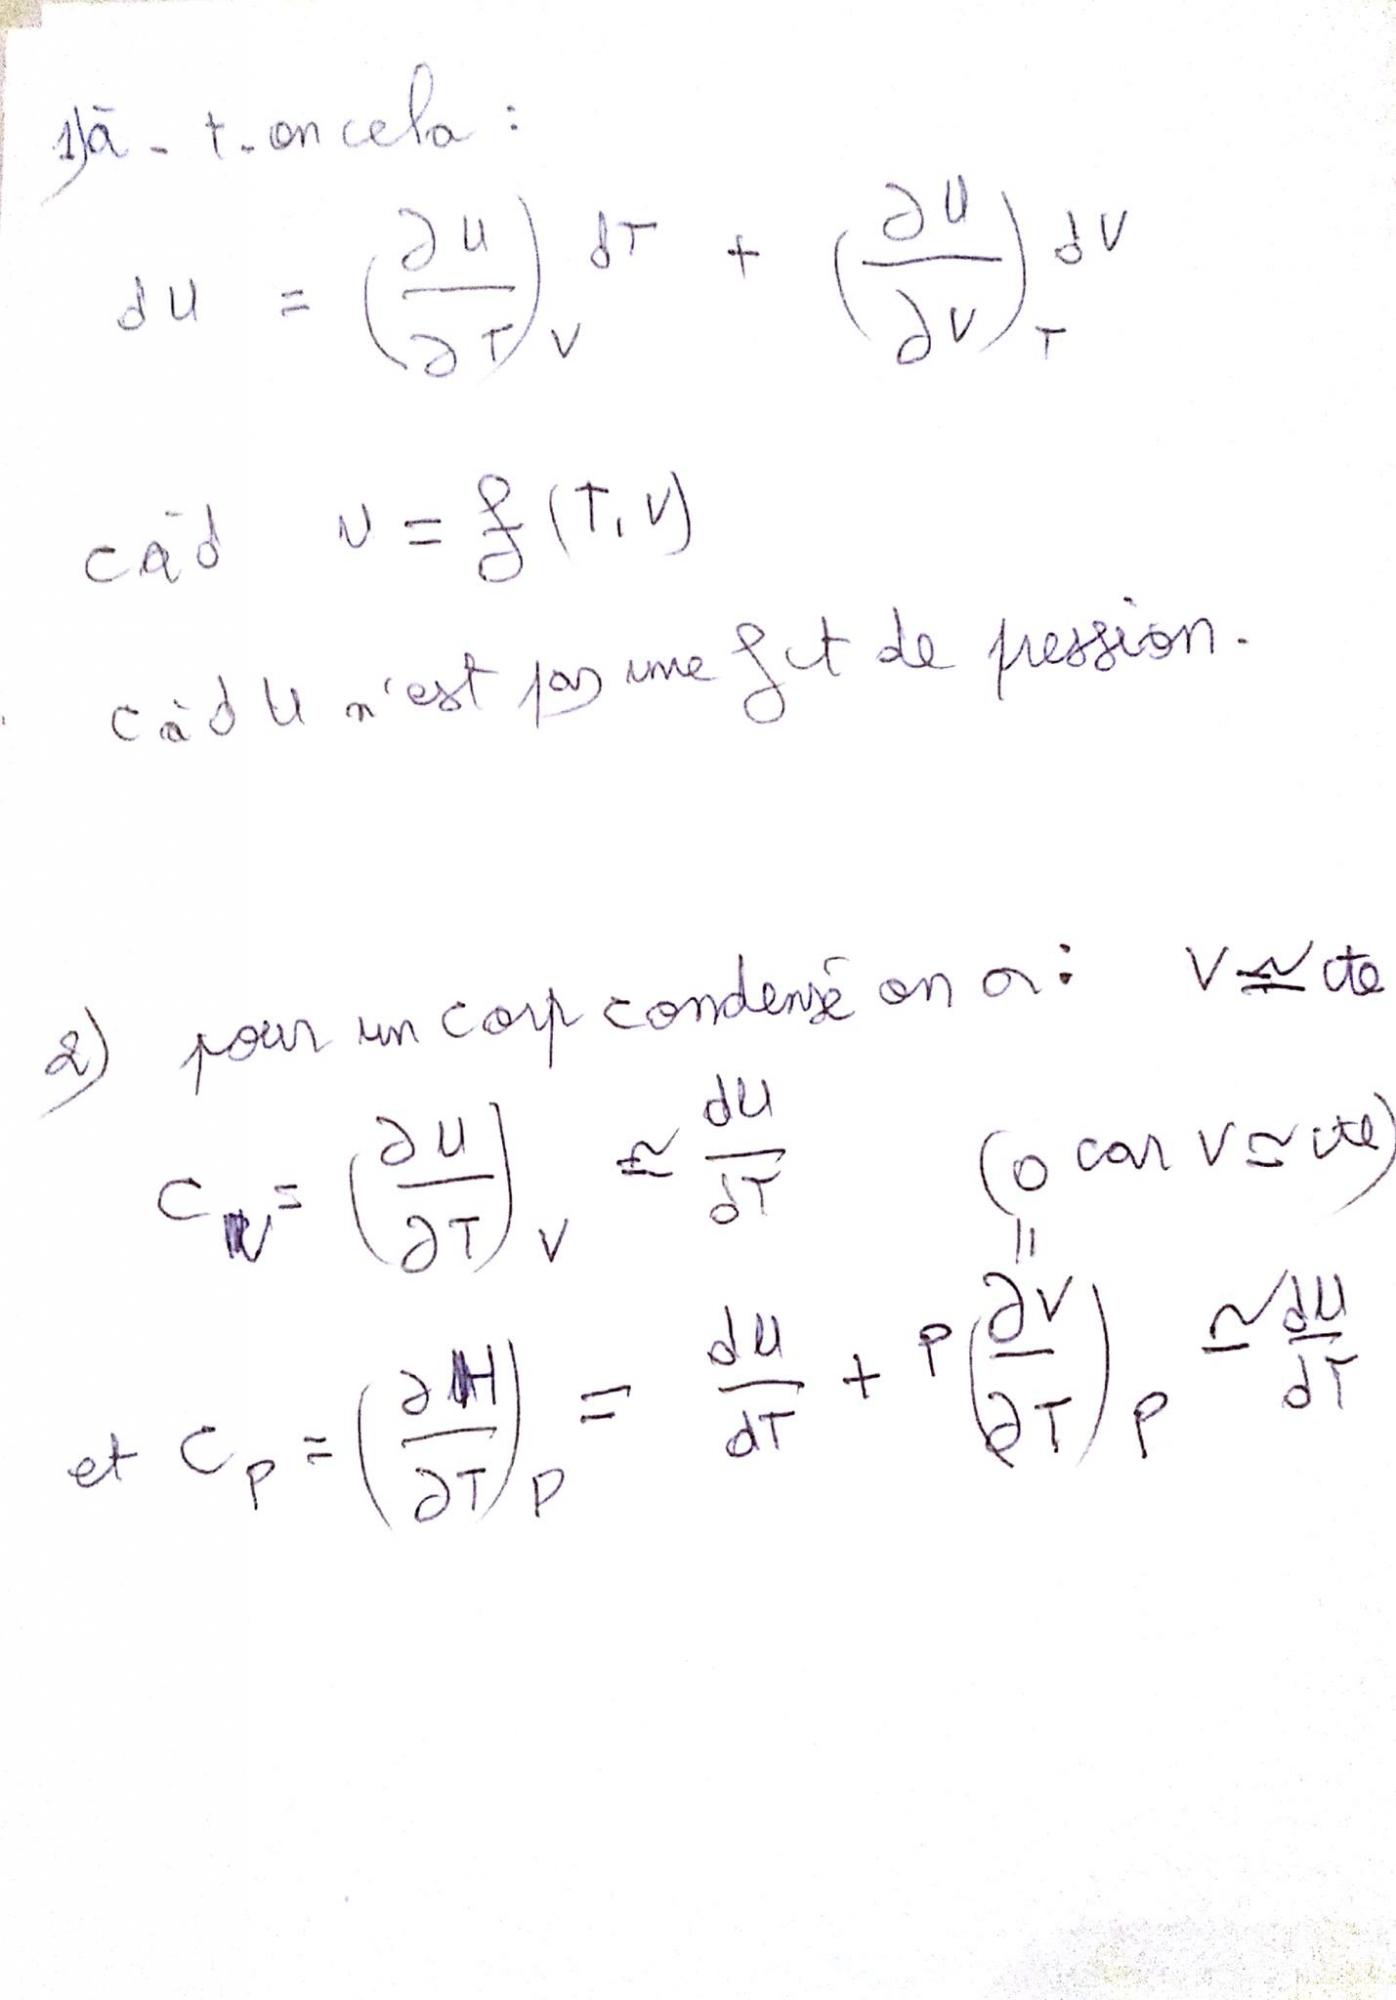 1) a-t-on cela :
dU = (∂U/∂T)_V dT + (∂U/∂V)_T dV
càd U = f(T, V)
càd U n'est pas une fct de pression.
2) pour un corp condensé on a : V ≃ cte
C_V = (∂U/∂T)_V ≃ dU/dT (0 car V ≃ cte)
et C_P = (∂H/∂T)_P = dU/dT + P(∂V/∂T)_P ≃ dU/dT